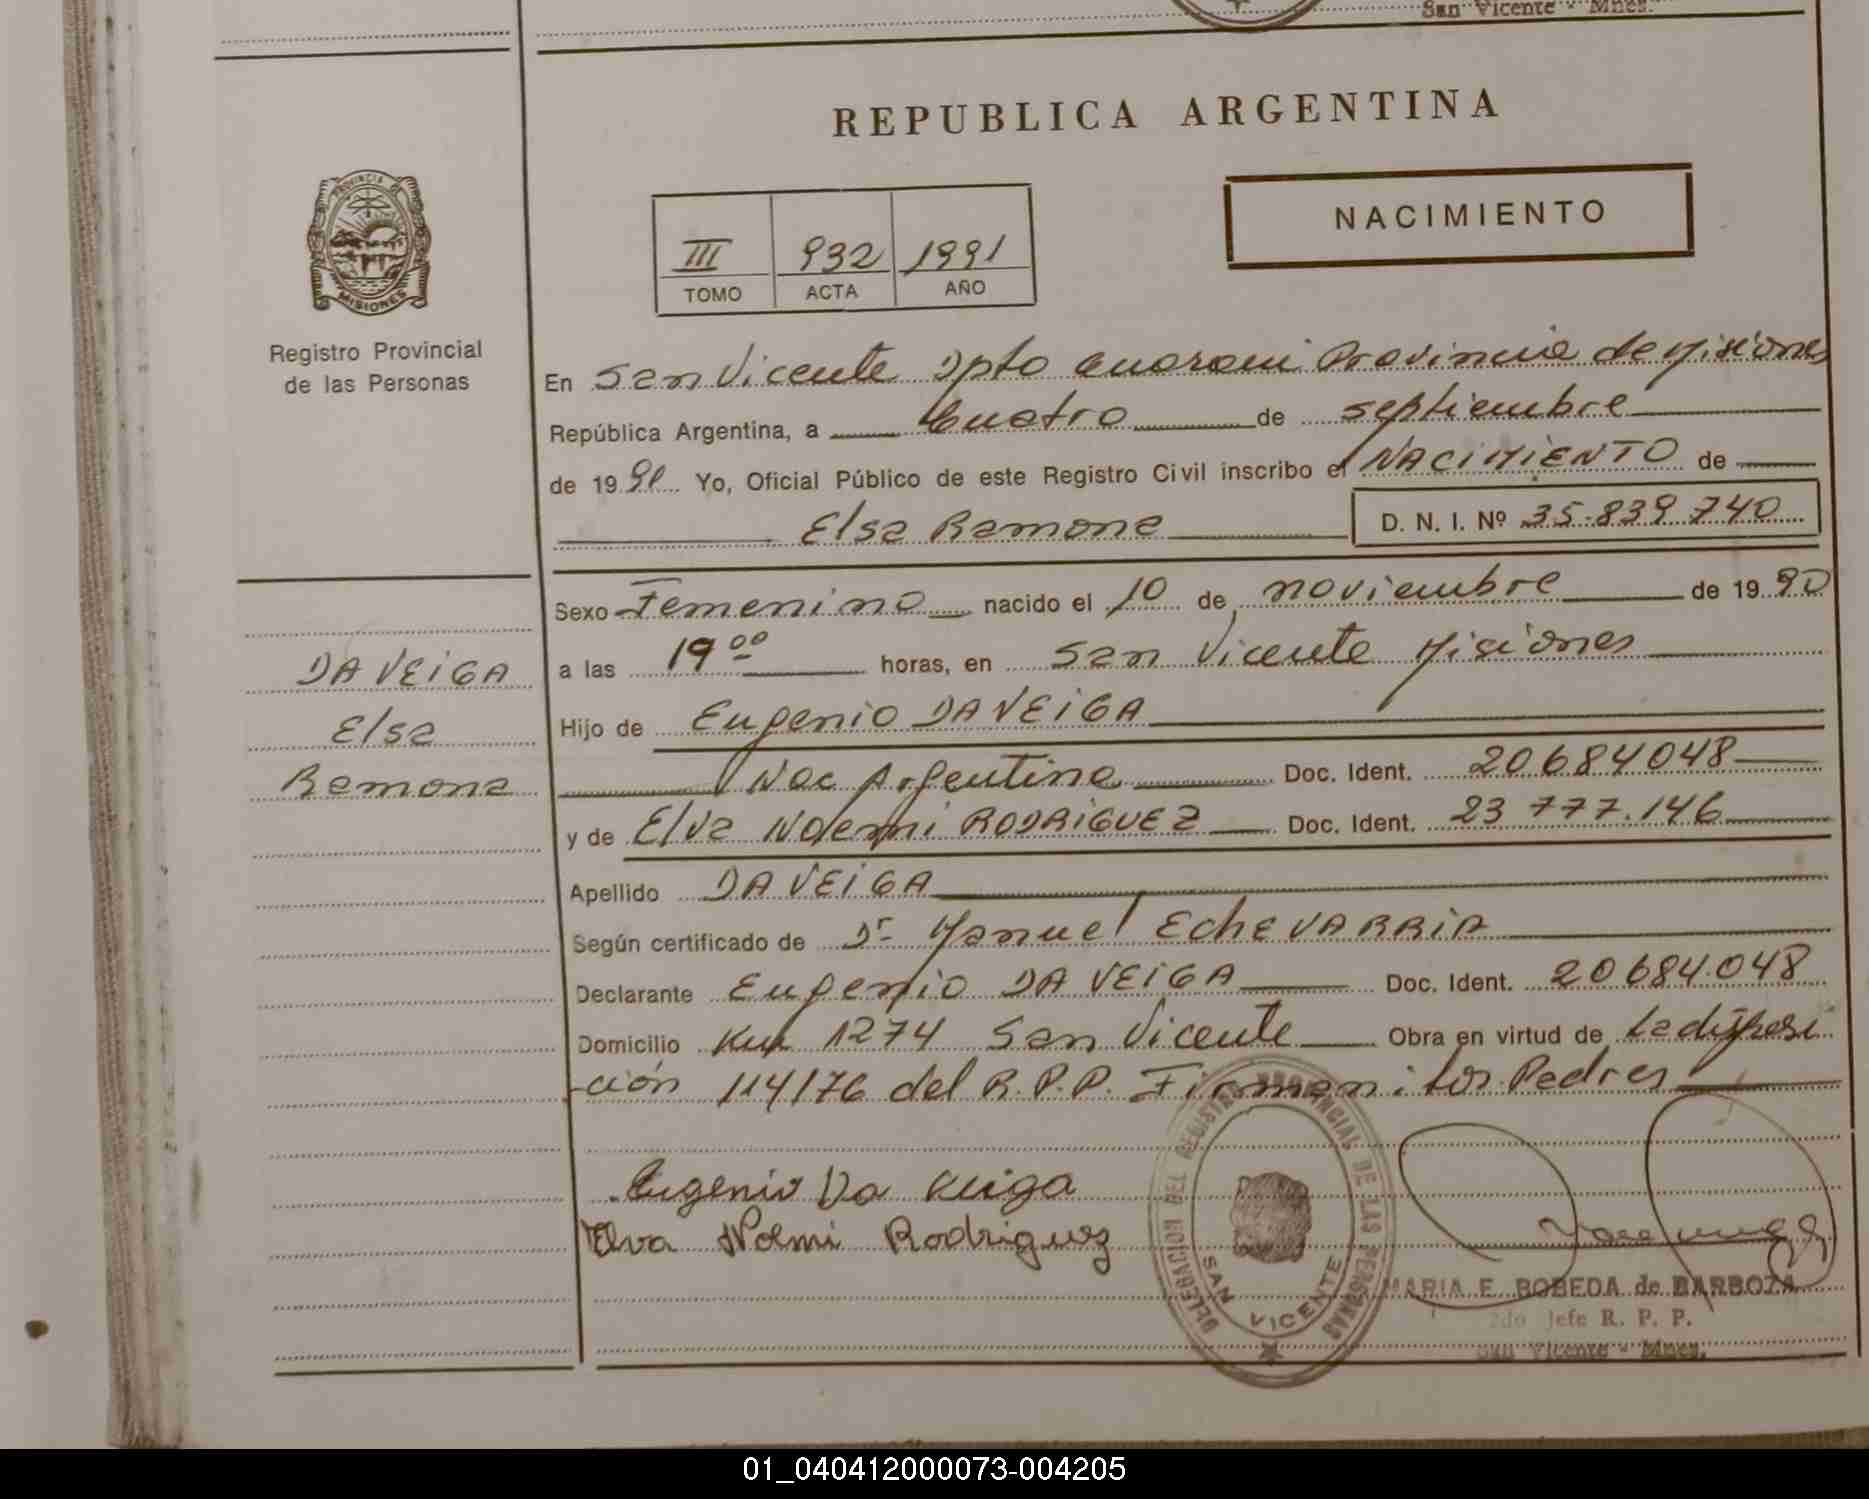 San Vicente - Mnes.
REPUBLICA ARGENTINA
NACIMIENTO
PROVINCIA DE
MISIONES
Registro Provincial
de las Personas
III 932 1991
TOMO ACTA AÑO
En San Vicente Dpto Guarani Provincia de Misiones
República Argentina, a Cuatro de septiembre
de 1991 Yo, Oficial Público de este Registro Civil inscribo el NACIMIENTO de
Elsa Ramona D. N. I. Nº 35.839.740
Sexo Femenino nacido el 10 de noviembre de 1990
a las 19 00 horas, en San Vicente Misiones
Hijo de Eugenio DA VEIGA
Nac Argentina Doc. Ident. 20684048
y de Elva Noemi RODRIGUEZ Doc. Ident. 23 777.146
Apellido DA VEIGA
Según certificado de Dr Manuel EcheVARRIA
Declarante Eugenio DA VEIGA Doc. Ident. 20684.048
Domicilio Km 1274 San Vicente Obra en virtud de la disposi
ción 114/76 del R.P.P. Firman: los Padres
DA VEIGA
Elsa
Ramona
Eugenio Da Veiga
Elva Noemi Rodriguez
DELEGACION DEL REGISTRO PROVINCIAL DE LAS PERSONAS
SAN VICENTE
MARIA E. BOBEDA de BARBOZA
2do Jefe R. P. P.
San Vicente - Mnes.
01_040412000073-004205